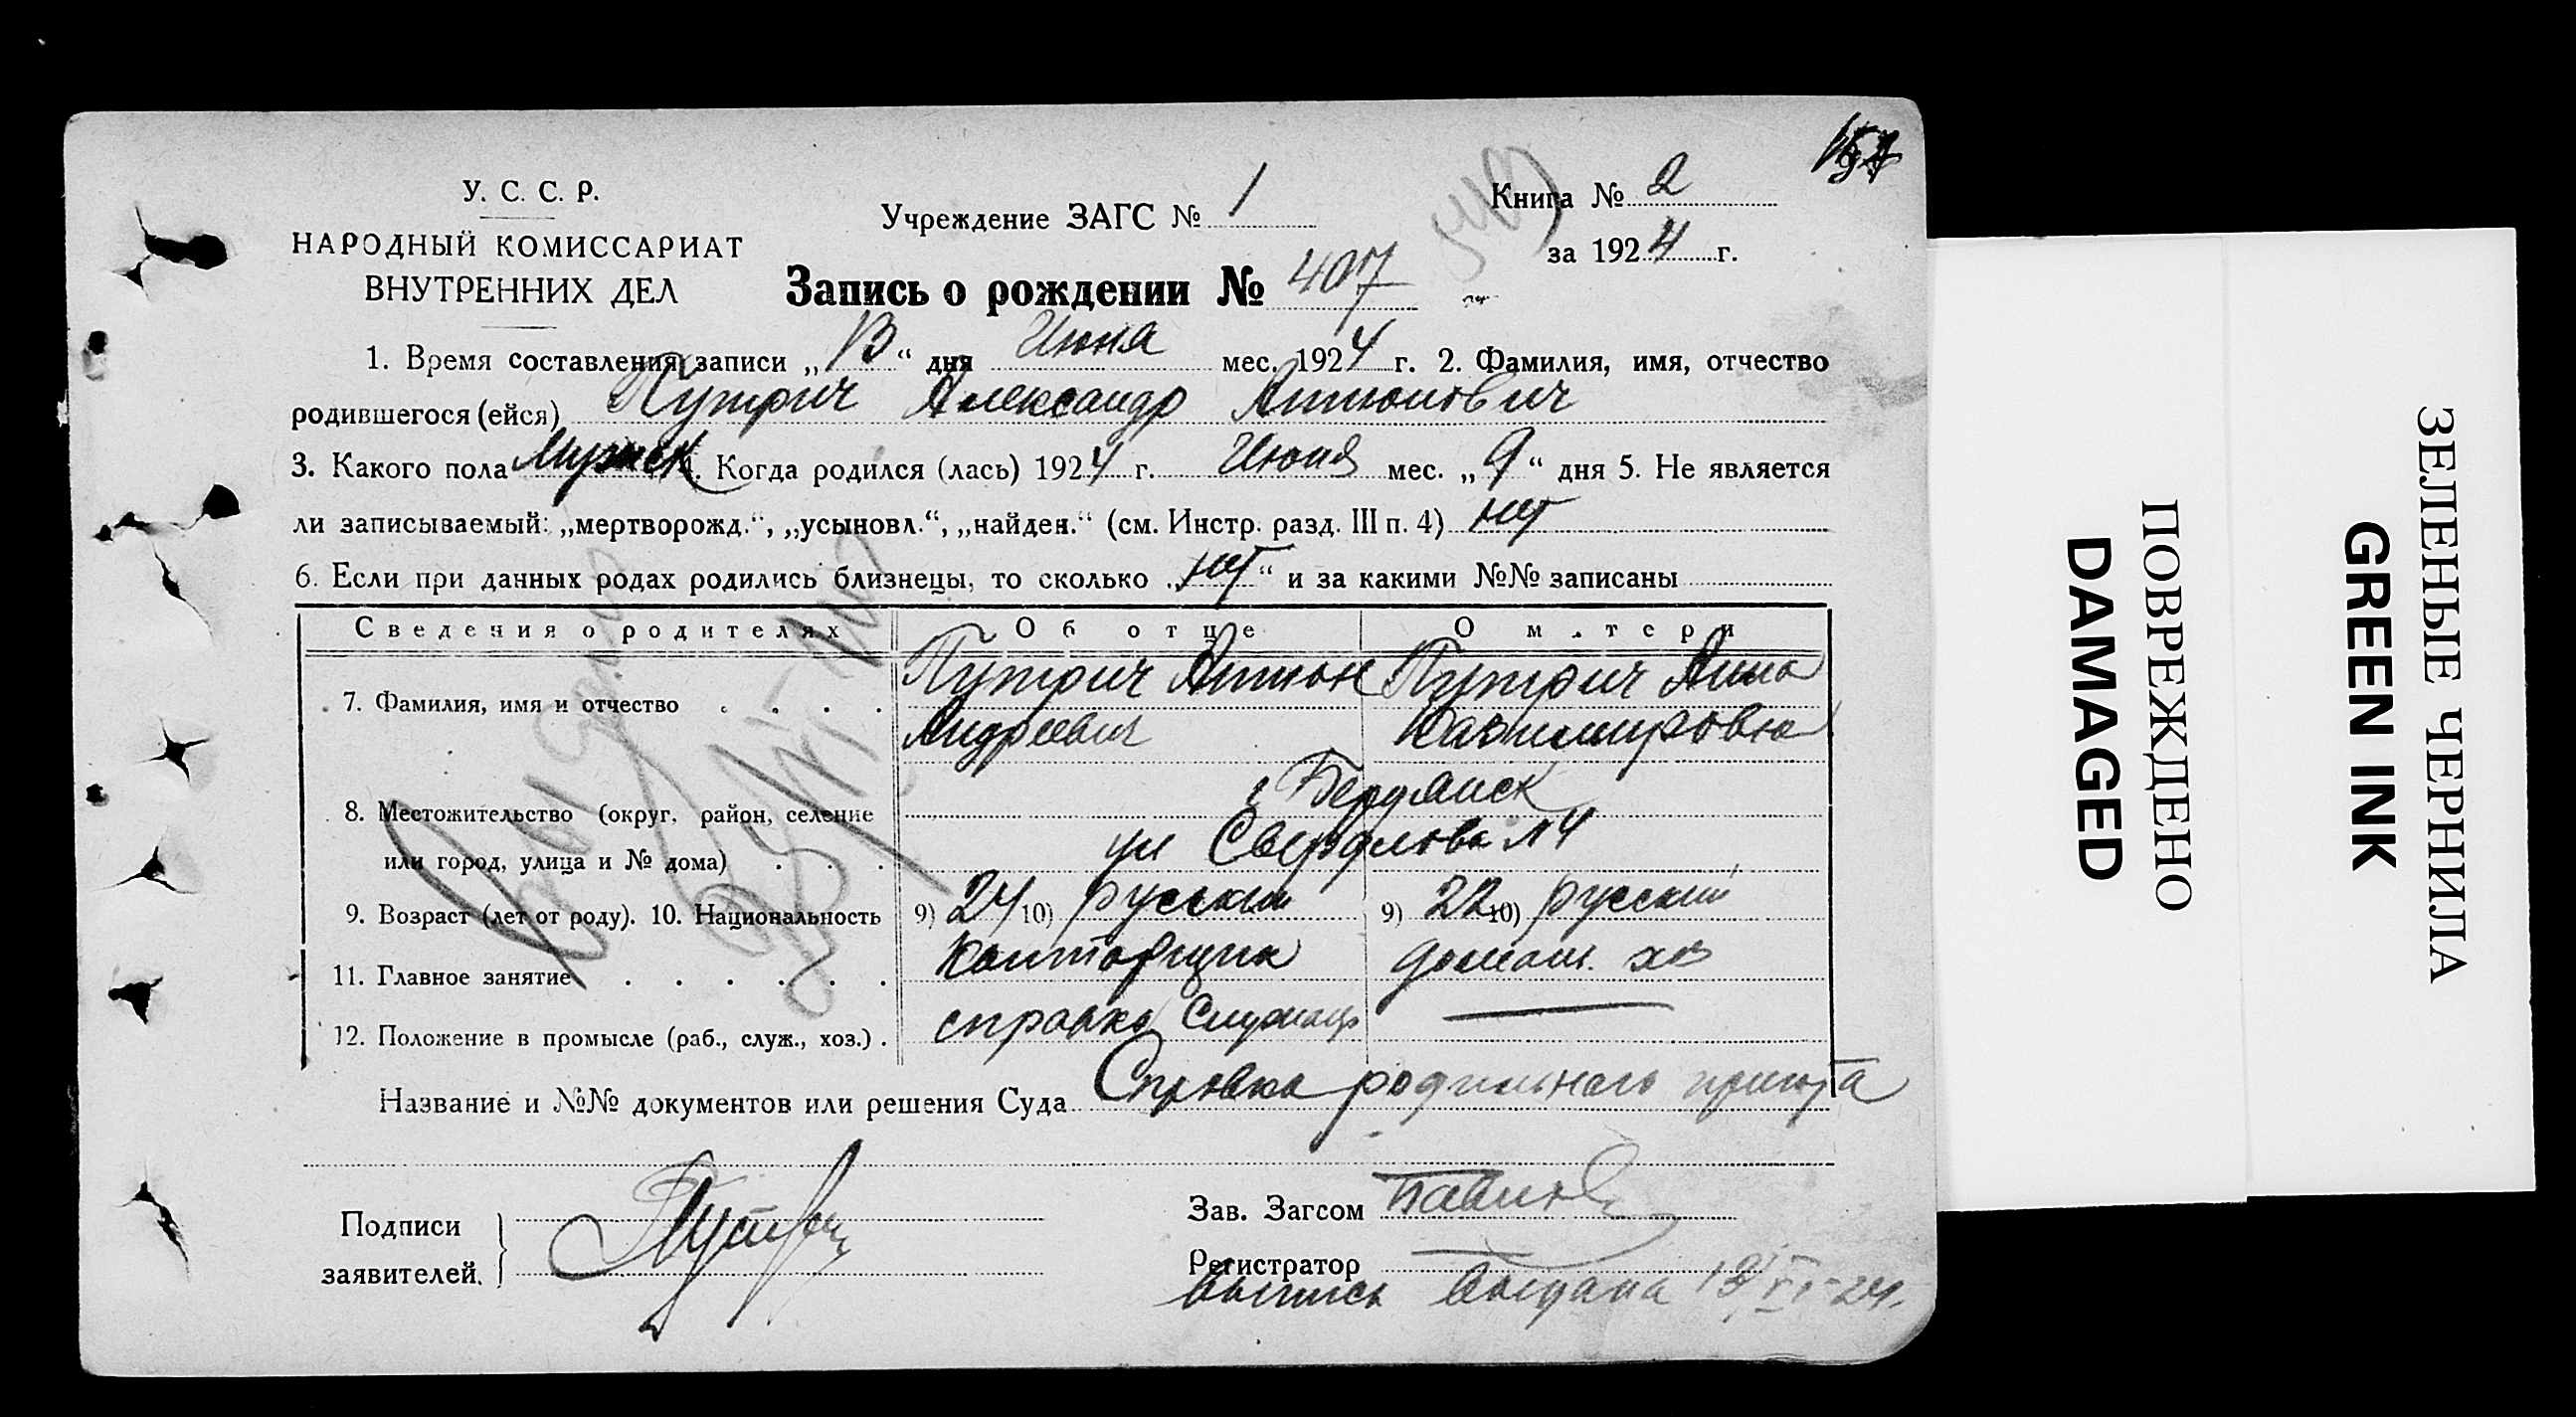 У. С. С. Р.
НАРОДНЫЙ КОМИССАРИАТ
ВНУТРЕННИХ ДЕЛ
Учреждение ЗАГС № 1
Книга № 2
за 1924 г.
Запись о рождении № 407
1. Время составления записи „13“ дня Июня мес. 1924 г. 2. Фамилия, имя, отчество
родившегося (ейся) Путрич Александр Антонович
3. Какого пола мужск 4. Когда родился (лась) 1924 г. Июня мес. „9“ дня 5. Не является
ли записываемый: „мертворожд.“, „усыновл.“, „найден.“ (см. Инстр. разд. III п. 4) нет
6. Если при данных родах родились близнецы, то сколько „нет“ и за какими №№ записаны
Сведения о родителях Об отце О матери
7. Фамилия, имя и отчество . . . . Путрич Антон Путрич Анна
Андреевич Казимировна
г Бердянск
8. Местожительство (округ, район, селение
или город, улица и № дома) . . . ул Свердлова 14
9. Возраст (лет от роду). 10. Национальность 9) 24 10) русский 9) 22 10) русский
11. Главное занятие . . . . . . конторщик домаш. хоз
12. Положение в промысле (раб., служ., хоз.) . справка служащ
Название и №№ документов или решения Суда Справка родильного приюта
Подписи
заявителей.
Путрич
Зав. Загсом
Регистратор
Выпись выдана 13/VI-24.
Выдана
ПОВРЕЖДЕНО
DAMAGED
ЗЕЛЕНЫЕ ЧЕРНИЛА
GREEN INK